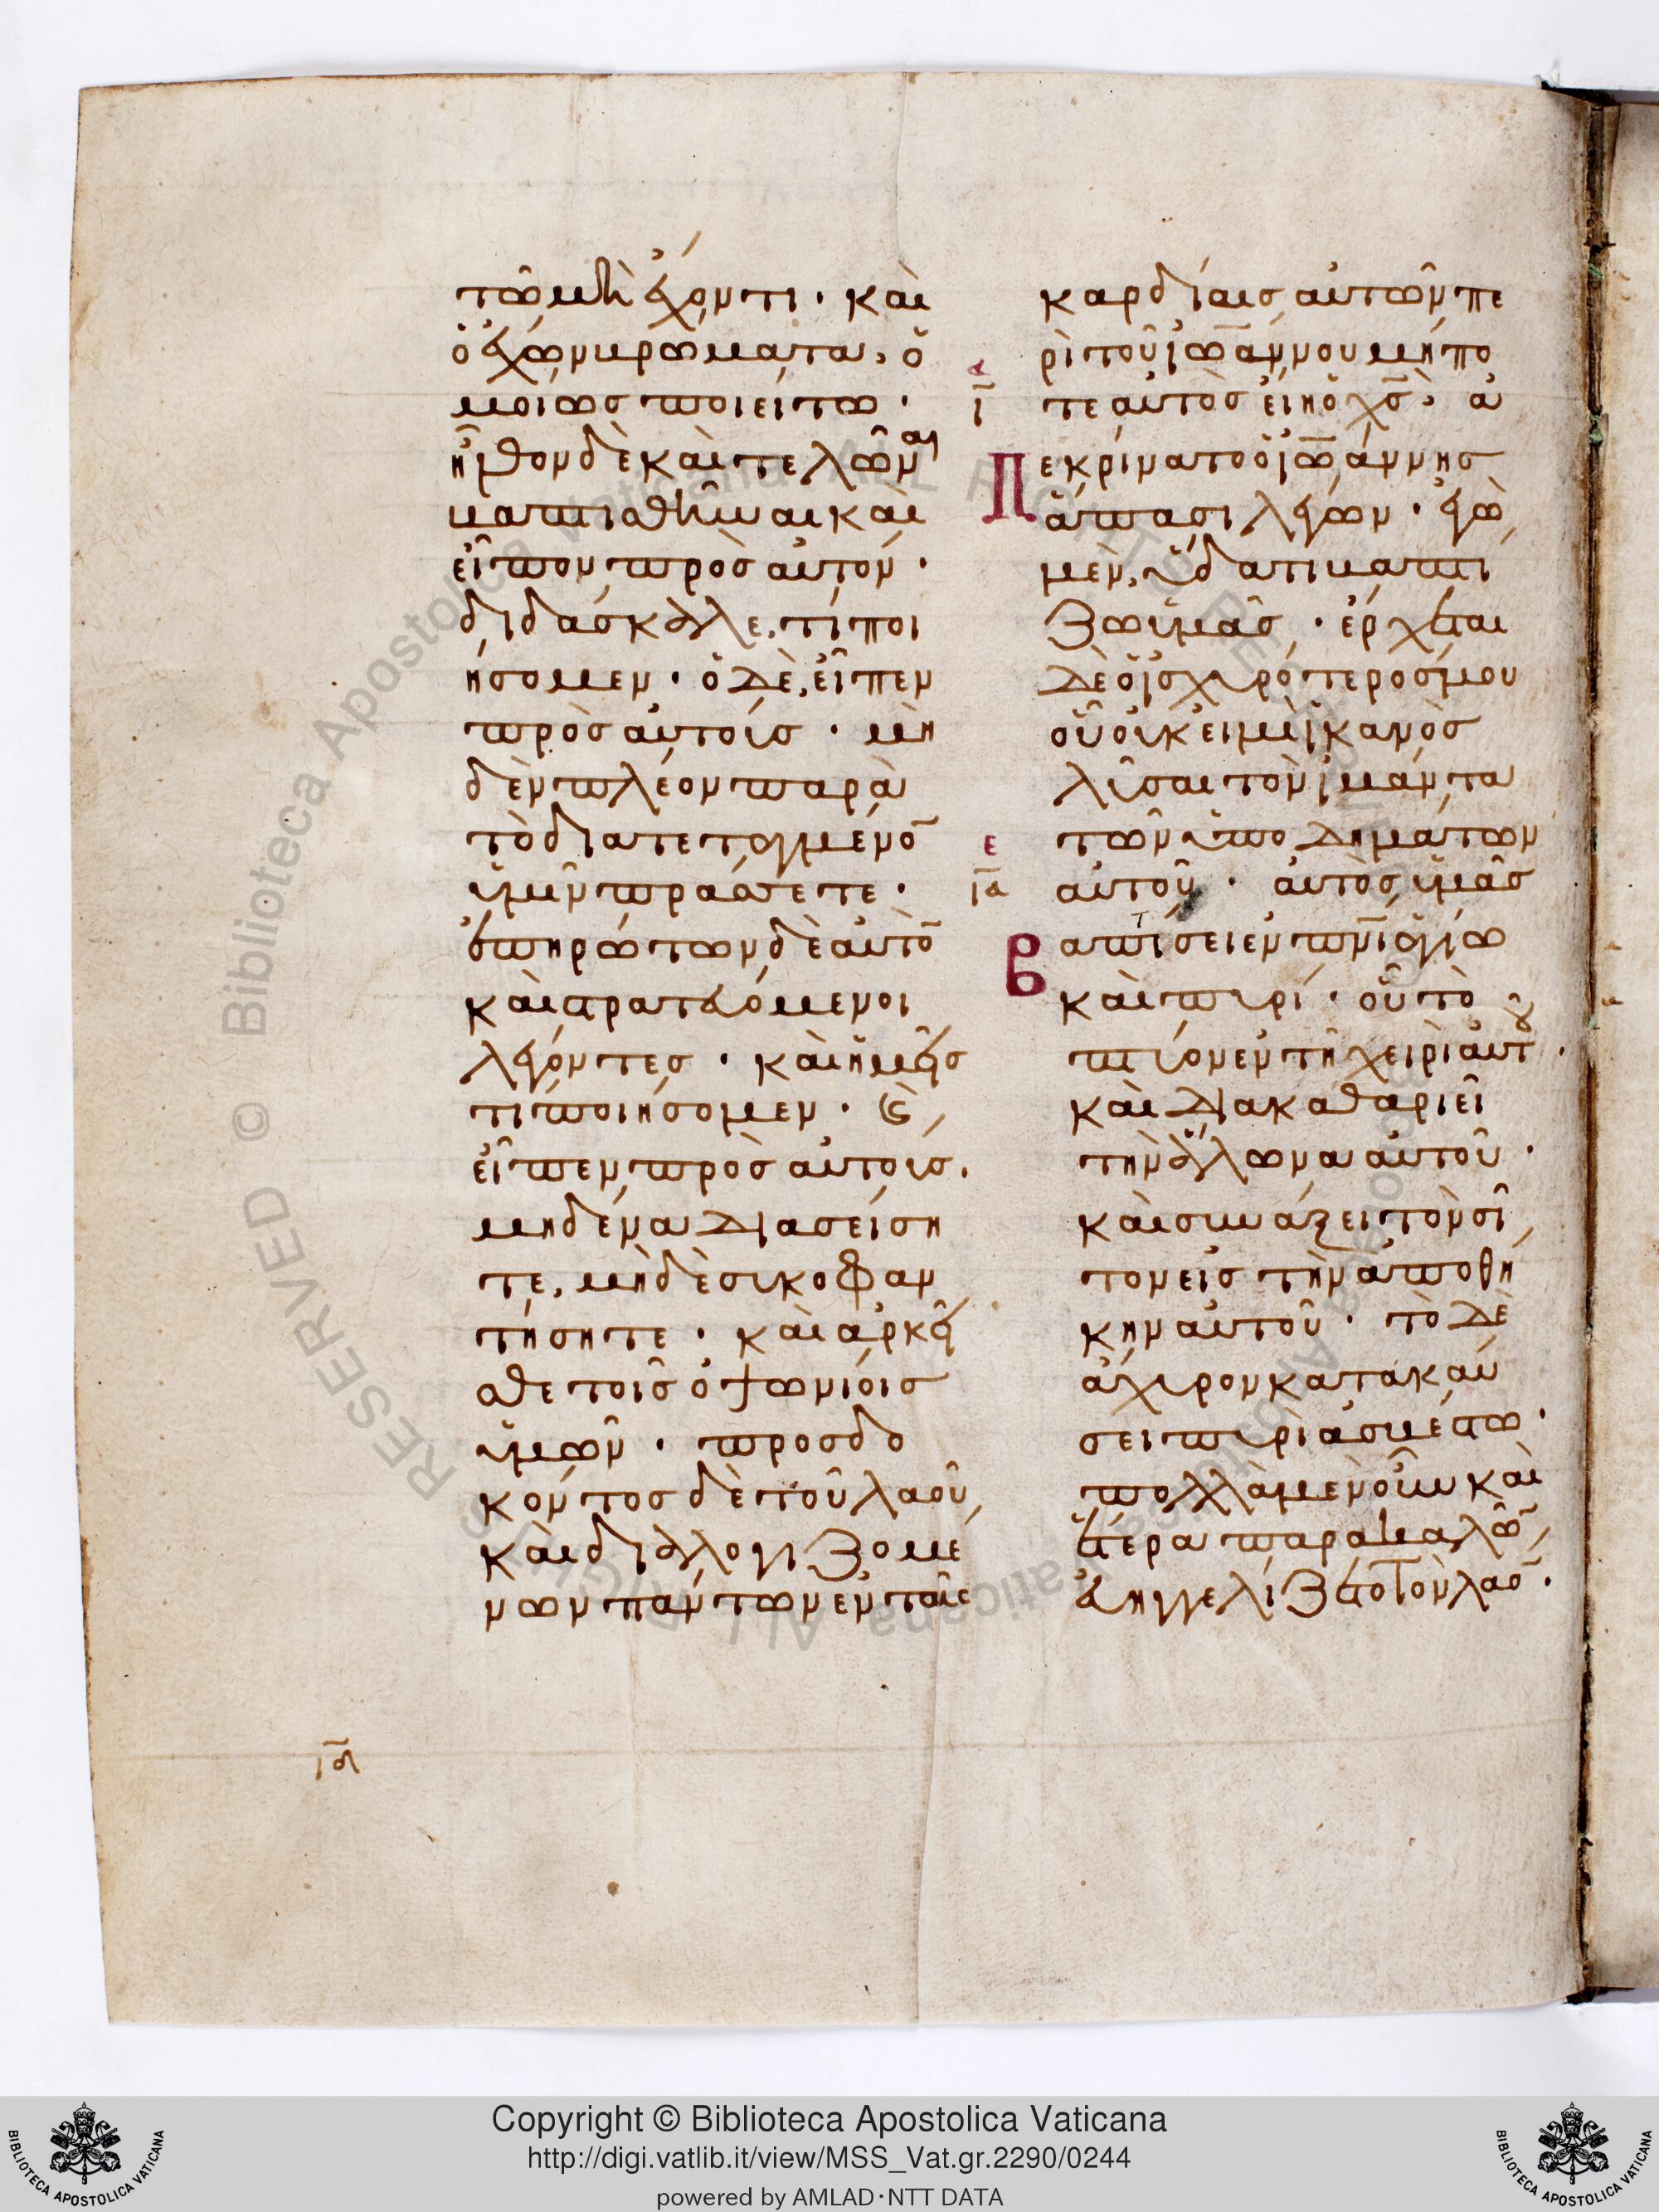 τῶ μὴ ἔχοντι · καὶ
ὁ ἔχων βρώματα, ὁ
μοίως ποιείτω ·
ἦλθον δὲ καὶ τελῶναι
βαπτισθῆναι καὶ
εἶπον πρὸς αὐτόν ·
διδάσκαλε, τί ποι
ήσομεν · ὁ δὲ, εἶπεν
πρὸς αὐτούς · μη
δὲν πλέον παρὰ
τὸ διατεταγμένο̅
ὑμῖν πράσσετε ·
ἐπηρώτων δὲ αὐτὸ̅
καὶ στρατευόμενοι
λέγοντες · καὶ ἡμεῖς
τί ποιήσομεν · καὶ
εἶπεν πρὸς αὐτούς.
μηδένα διασείση
τε, μὴδὲ συκοφαν
τήσητε · καὶ ἀρκεῖ
σθε τοῖς ὀψωνίοις
ὑμῶν · προσδο
κόντος δὲ τοῦ λαοῦ,
καὶ διαλογιζομέ
νων πάντων ἐν ταῖς
καρδίαις αὐτῶν πε
ρὶ τοῦ ἰωάννου μήπο
δ
ι̅
τε αὐτὸς εἴη ὁ χ̅ς̅ · ἀ
Πεκρίνατο ὁ ἰωάννης
ἅπασι λέγων · ἐγὼ
μὲν, ὕδατι βαπτί
ζω ὑμᾶς · ἔρχεται
δὲ ὁ ἰσχυρότερός μου
οὗ οὐκ εἰμὶ ἱκανὸς
λῦσαι τὸν ἱμάντα
ε
τῶν ὑποδημάτων
ια̅
αὐτοῦ · αὐτὸς ὑμᾶς
Βαπτίσει ἐν π̅ν̅ι̅ ἁγίω
καὶ πυρί · οὗ τὸ
πτύον ἐν τῆ χειρὶ αὐτοῦ ·
καὶ διακαθαριεῖ
τὴν ἅλωνα αὐτοῦ ·
καὶ συνάξει τὸν σῖ
τον εἰς τὴν ἀποθή
κην αὐτοῦ · τὸ δὲ
ἄχυρον κατακαύ
σει πυρὶ ἀσβέστω ·
πολλὰ μὲν οὖν καὶ
ἕτερα παρακαλῶ̅,
εὐηγγελίζετο τὸν λαο̅ ·
ια̅
Copyright © Biblioteca Apostolica Vaticana
http://digi.vatlib.it/view/MSS_Vat.gr.2290/0244
powered by AMLAD·NTT DATA
BIBLIOTECA APOSTOLICA VATICANA
BIBLIOTECA APOSTOLICA VATICANA
© Biblioteca Apostolica Vaticana ALL RIGHTS RESERVED